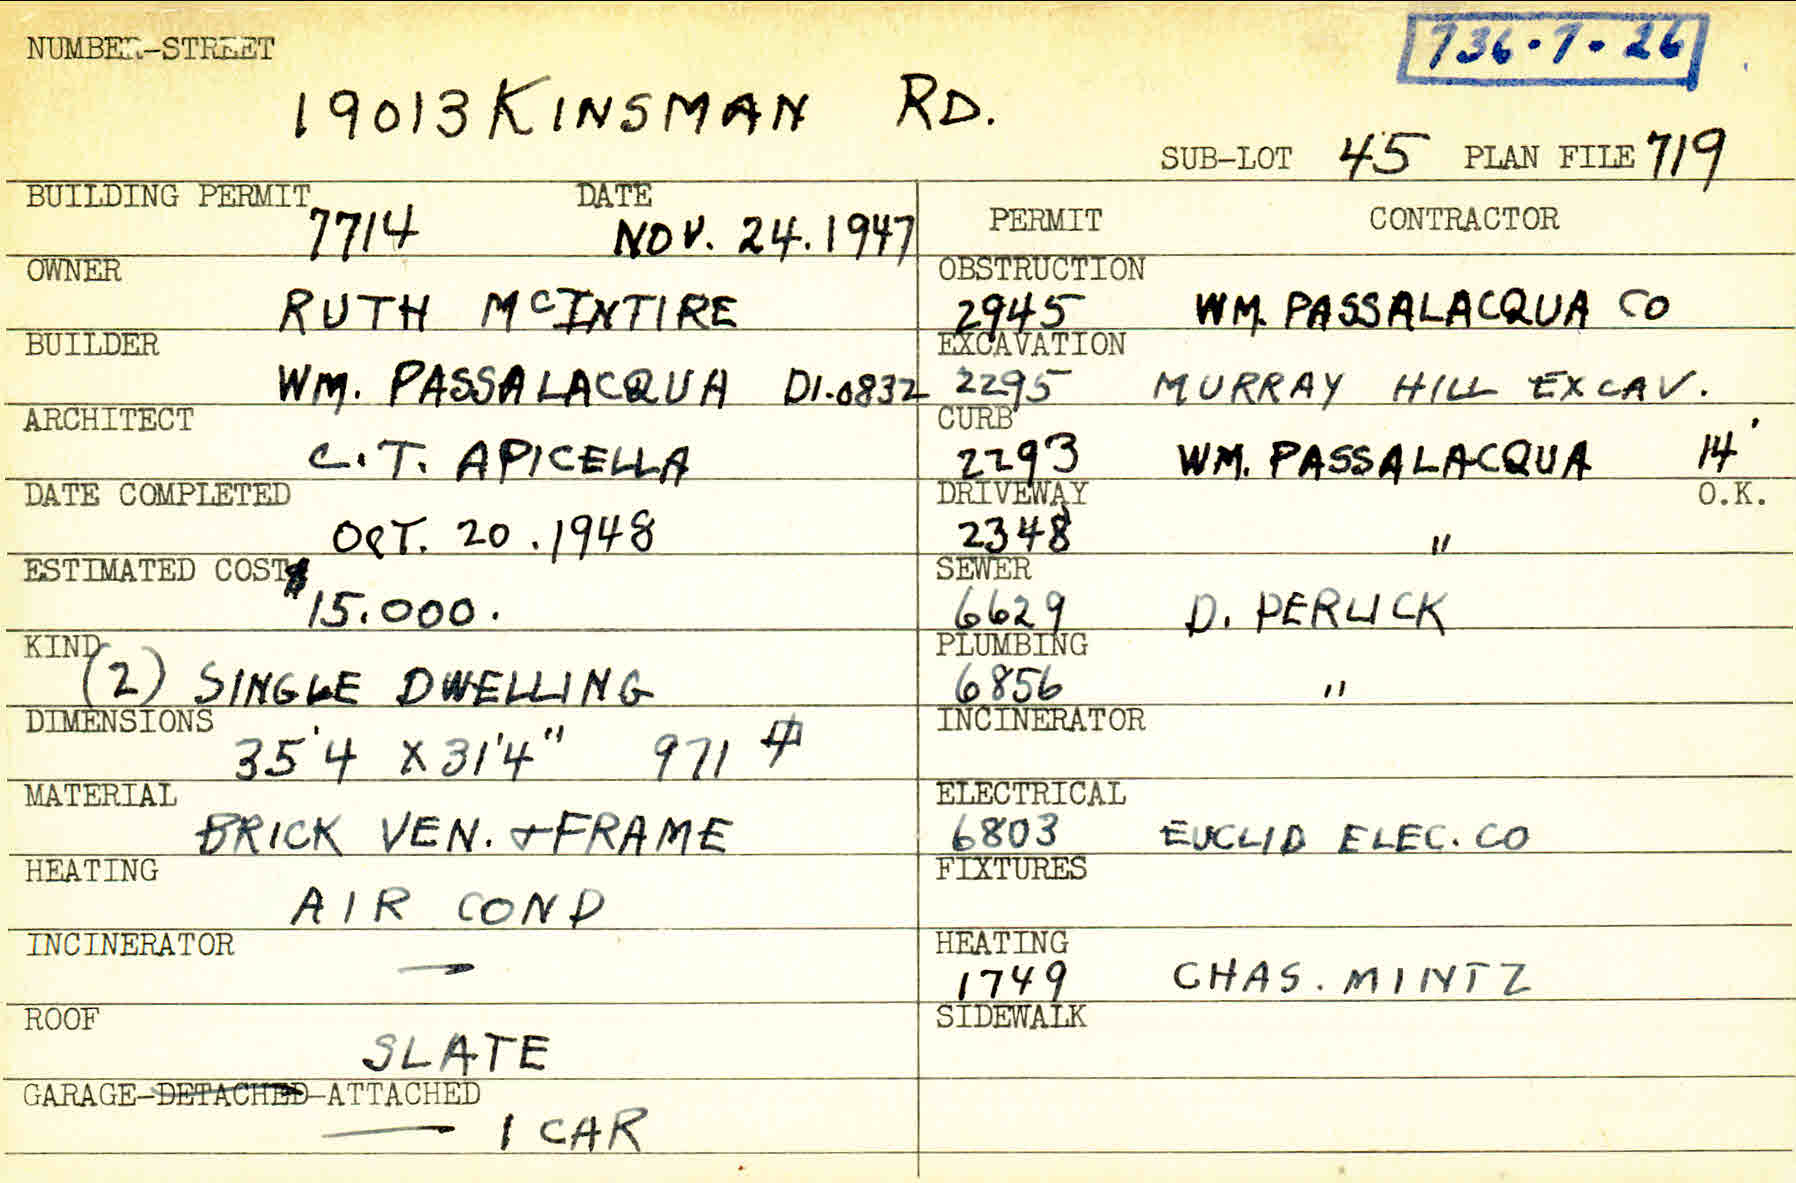 NUMBER-STREET
736-7-26
19013 KINSMAN RD.
SUB-LOT 45 PLAN FILE 719
BUILDING PERMIT DATE
7714 NOV. 24. 1947
PERMIT CONTRACTOR
OWNER
RUTH McINTIRE
OBSTRUCTION
2945 WM. PASSALACQUA CO
BUILDER
WM. PASSALACQUA DI-0832
EXCAVATION
2295 MURRAY HILL EXCAV.
ARCHITECT
C.T. APICELLA
CURB
2293 WM. PASSALACQUA 14'
DATE COMPLETED
OCT. 20. 1948
DRIVEWAY O.K.
2348 "
ESTIMATED COST $
15.000.
SEWER
6629 D. PERLICK
KIND
(2) SINGLE DWELLING
PLUMBING
6856 "
DIMENSIONS
35'4 X 31'4" 971 #
INCINERATOR
MATERIAL
BRICK VEN. & FRAME
ELECTRICAL
6803 EUCLID ELEC. CO
HEATING
AIR COND
FIXTURES
INCINERATOR
—
HEATING
1749 CHAS. MINTZ
ROOF
SLATE
SIDEWALK
GARAGE-DETACHED-ATTACHED
— 1 CAR